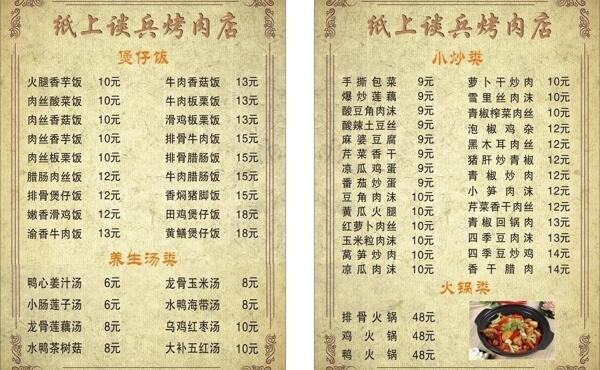 纸上谈兵烤肉店
煲仔饭
火腿香芋饭 10元 牛肉香菇饭 13元
肉丝酸菜饭 10元 牛肉板栗饭 13元
肉丝香菇饭 10元 滑鸡板栗饭 13元
肉丝香芋饭 10元 排骨牛肉饭 15元
肉丝板栗饭 10元 排骨腊肠饭 15元
腊肠肉丝饭 12元 牛肉腊肠饭 15元
排骨煲仔饭 12元 香焖猪脚饭 15元
嫩香滑鸡饭 12元 田鸡煲仔饭 18元
渝香牛肉饭 13元 黄鳝煲仔饭 18元
养生汤类
鸭心姜汁汤 6元 龙骨玉米汤 8元
小肠莲子汤 6元 水鸭海带汤 8元
龙骨莲藕汤 8元 乌鸡红枣汤 10元
水鸭茶树菇 8元 大补五红汤 10元
纸上谈兵烤肉店
小炒类
手撕包菜 9元 萝卜干炒肉 10元
爆炒莲藕 9元 雪里丝肉沫 10元
酸豆角肉沫 9元 青椒榨菜肉丝 10元
酸辣土豆丝 9元 泡椒鸡杂 12元
麻婆豆腐 9元 黑木耳肉丝 12元
芹菜香干 9元 猪肝炒青椒 12元
凉瓜鸡蛋 9元 青椒炒肉 12元
番茄炒蛋 9元 小笋肉沫 12元
豆角肉沫 10元 芹菜香干肉丝 12元
黄瓜火腿 10元 青椒回锅肉 13元
红萝卜肉丝 10元 四季豆肉沫 13元
玉米粒肉沫 10元 四季豆炒鸡 14元
莴笋炒肉 10元 香干腊肉 14元
凉瓜肉沫 10元
火锅类
排骨火锅 48元
鸡火锅 48元
鸭火锅 48元